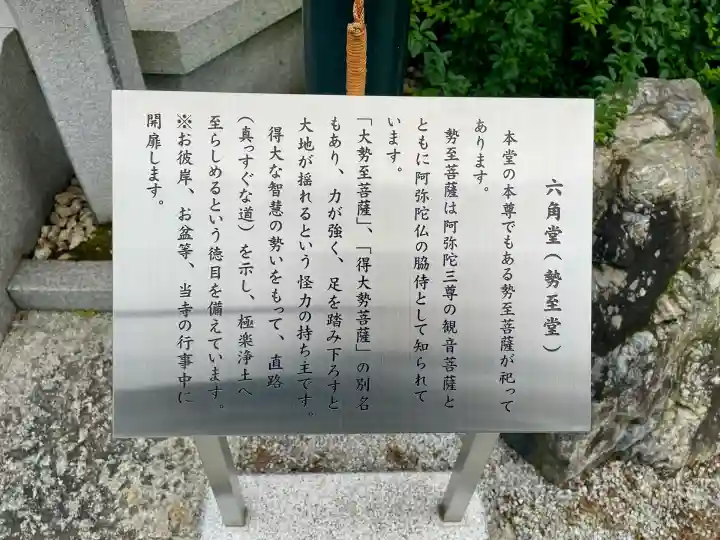 六角堂（勢至堂）
本堂の本尊でもある勢至菩薩が祀って
あります。
勢至菩薩は阿弥陀三尊の観音菩薩と
ともに阿弥陀仏の脇侍として知られて
います。
「大勢至菩薩」、「得大勢菩薩」の別名
もあり、力が強く、足を踏み下ろすと
大地が揺れるという怪力の持ち主です。
得大な智慧の勢いをもって、直路
（真っすぐな道）を示し、極楽浄土へ
至らしめるという徳目を備えています。
※お彼岸、お盆等、当寺の行事中に
開扉します。